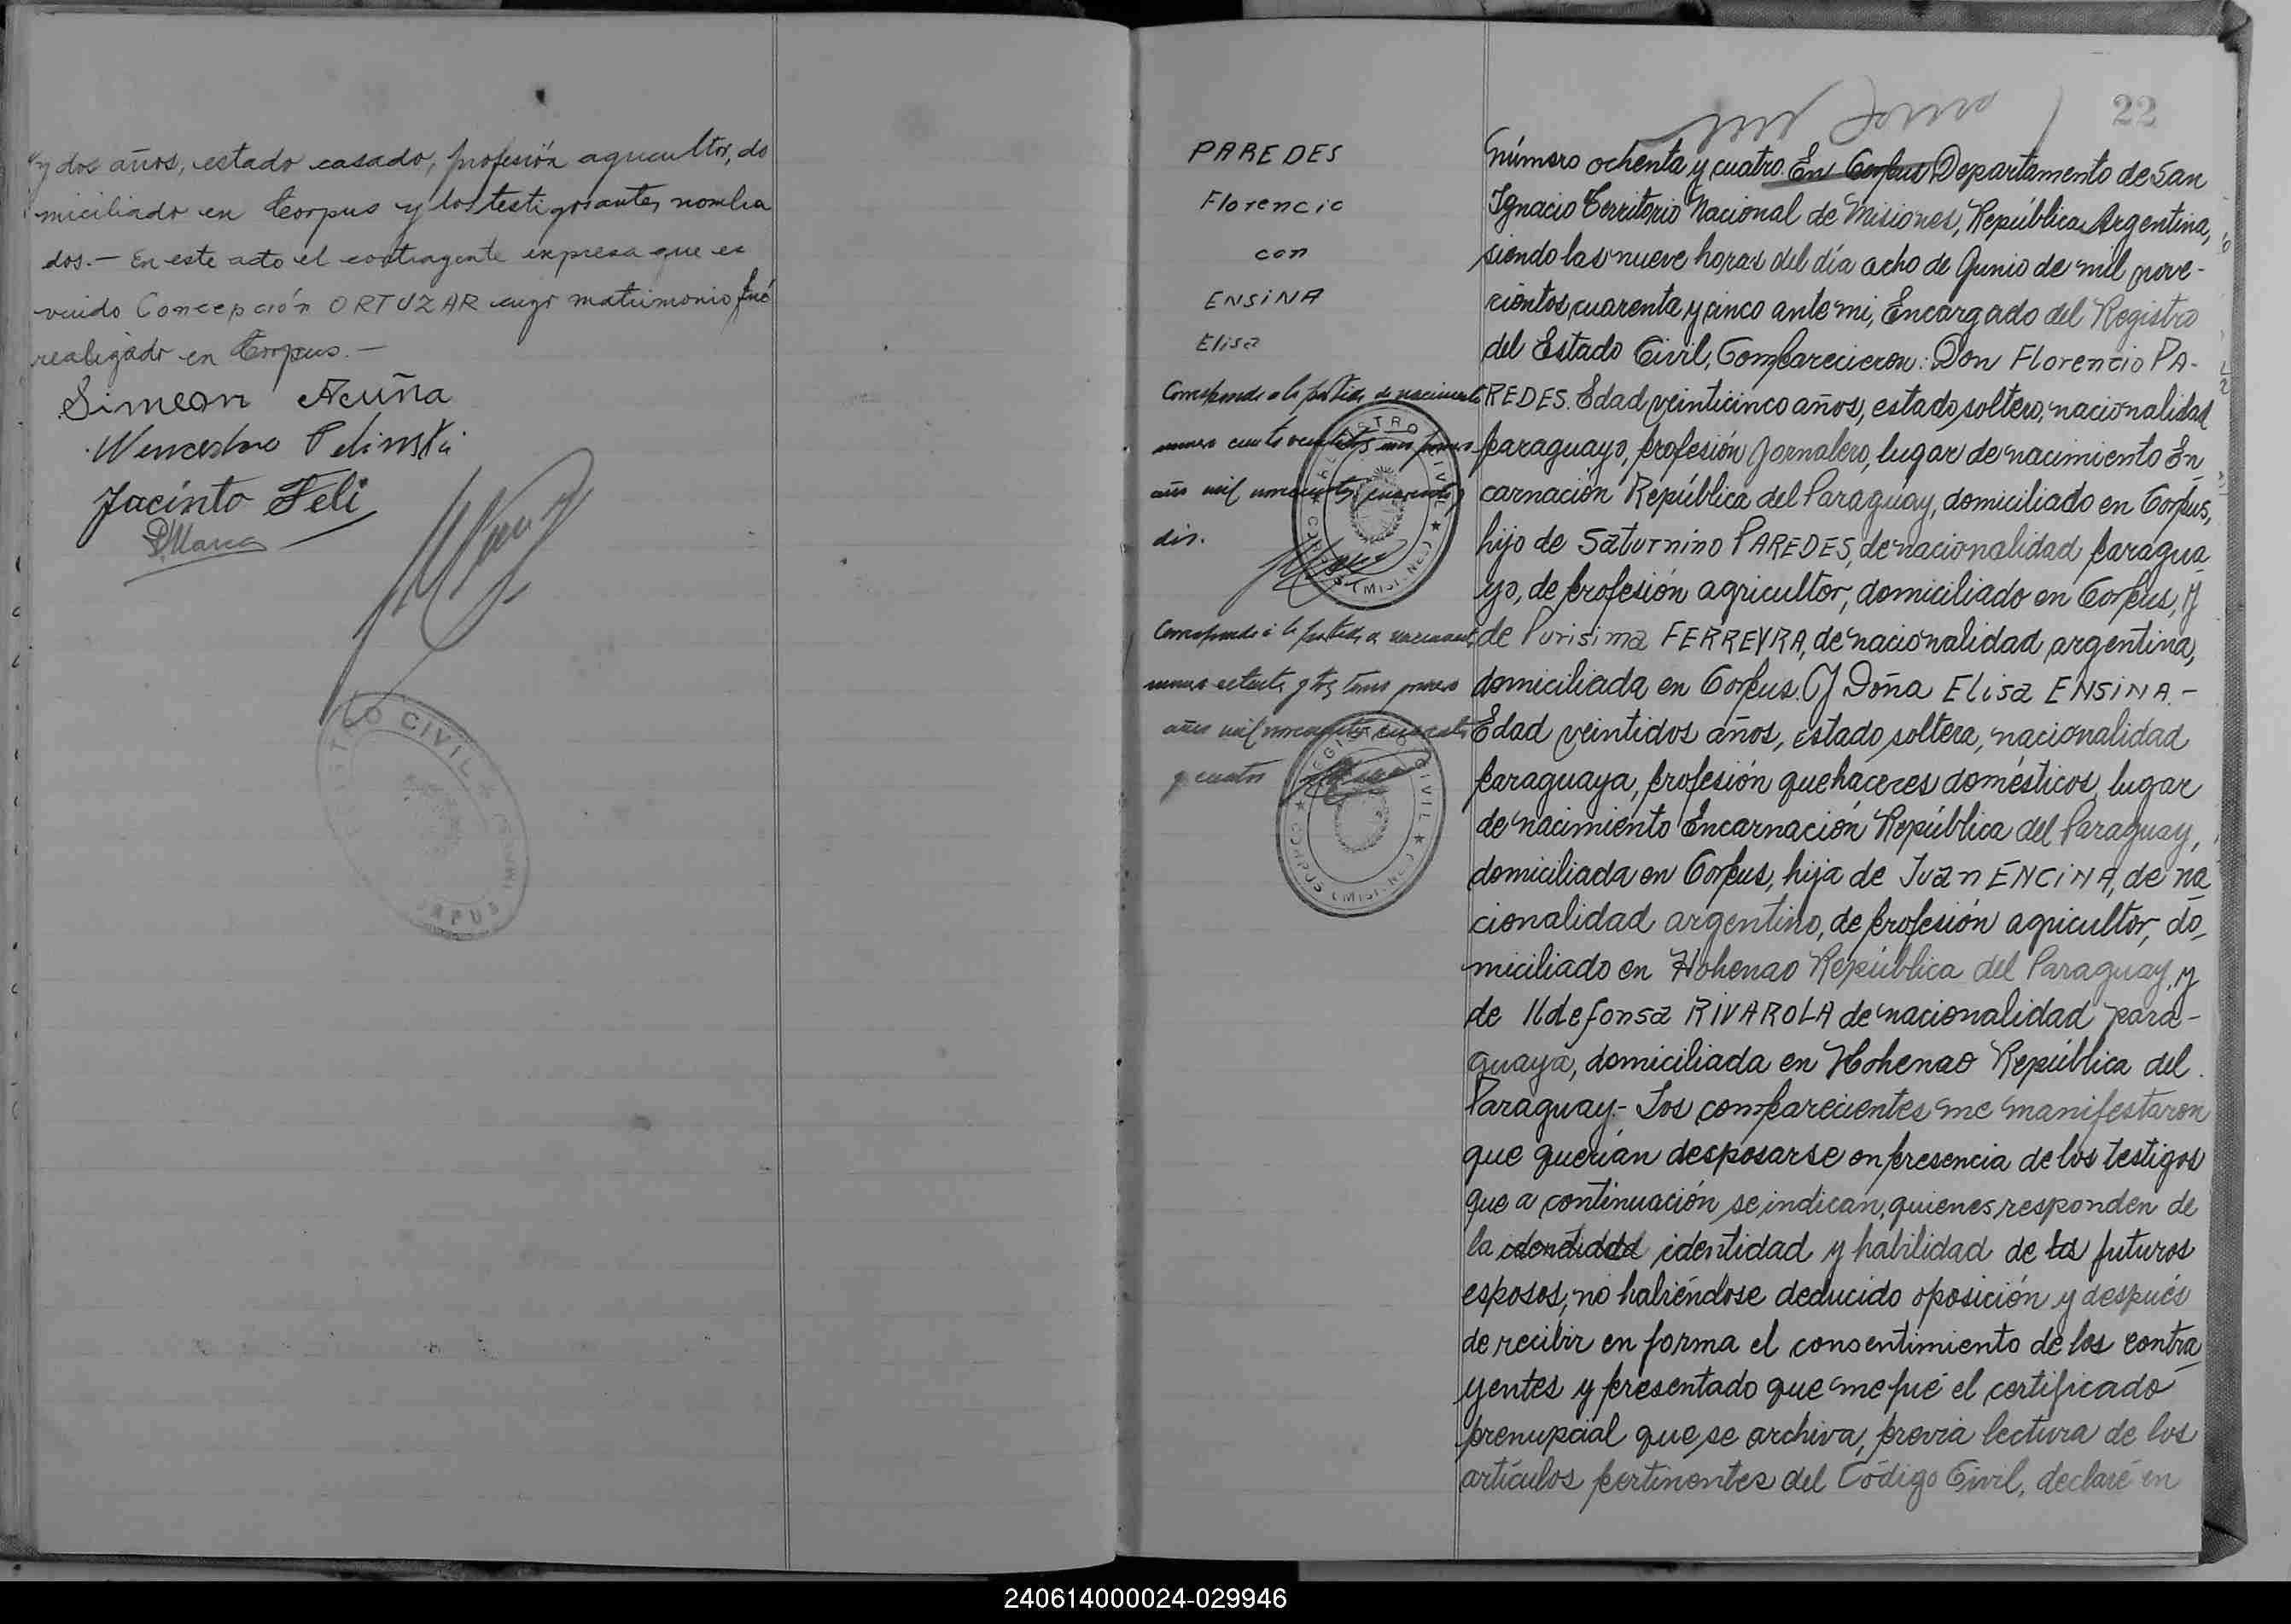 y dos años, estado casado, profesión agricultor, do
miciliado en Corpus y los testigos antes nombra
dos.— En este acto el contrayente expresa que es
viudo Concepción ORTUZAR cuyo matrimonio fué
realizado en Corpus.—
Simeon Acuña
Wenceslao
Jacinto Feli
22
PAREDES
Florencio
con
ENSINA
Elisa
Corresponde a la partida de nacimiento
año mil novecientos cuarenta y
Corresponde a la partida de nacimiento
numero setenta y tres tomo primero
año mil novecientos cuarenta
y cuatro
REGISTRO CIVIL
CORPUS (MISIONES)
número ochenta y cuatro. En Corpus Departamento de San
Ignacio Territorio Nacional de Misiones, República Argentina,
siendo las nueve horas del día ocho de Junio de mil nove-
cientos cuarenta y cinco ante mi, Encargado del Registro
del Estado Civil, Comparecieron: Don Florencio PA-
REDES. Edad veinticinco años, estado soltero, nacionalidad
paraguayo, profesión Jornalero, lugar de nacimiento En
carnación República del Paraguay, domiciliado en Corpus,
hijo de Saturnino PAREDES, de nacionalidad paragua
yo, de profesión agricultor, domiciliado en Corpus, y
de Purisima FERREYRA, de nacionalidad argentina,
domiciliada en Corpus. Y Doña Elisa ENSINA.-
Edad veintidos años, estado soltera, nacionalidad
paraguaya, profesión quehaceres domésticos, lugar
de nacimiento Encarnación República del Paraguay,
domiciliada en Corpus, hija de Juan ENCINA, de na
cionalidad argentino, de profesión agricultor, do
miciliado en Hohenao República del Paraguay, y
de Ildefonsa RIVAROLA de nacionalidad para-
guaya, domiciliada en Hohenao República del
Paraguay.- Los comparecientes me manifestaron
que querían desposarse en presencia de los testigos
que a continuación se indican, quienes responden de
la identidad identidad y habilidad de los futuros
esposos, no habiéndose deducido oposición y después
de recibir en forma el consentimiento de los contra
yentes y presentado que me fué el certificado
prenupcial que se archiva, previa lectura de los
artículos pertinentes del Código Civil, declaré en
240614000024-029946